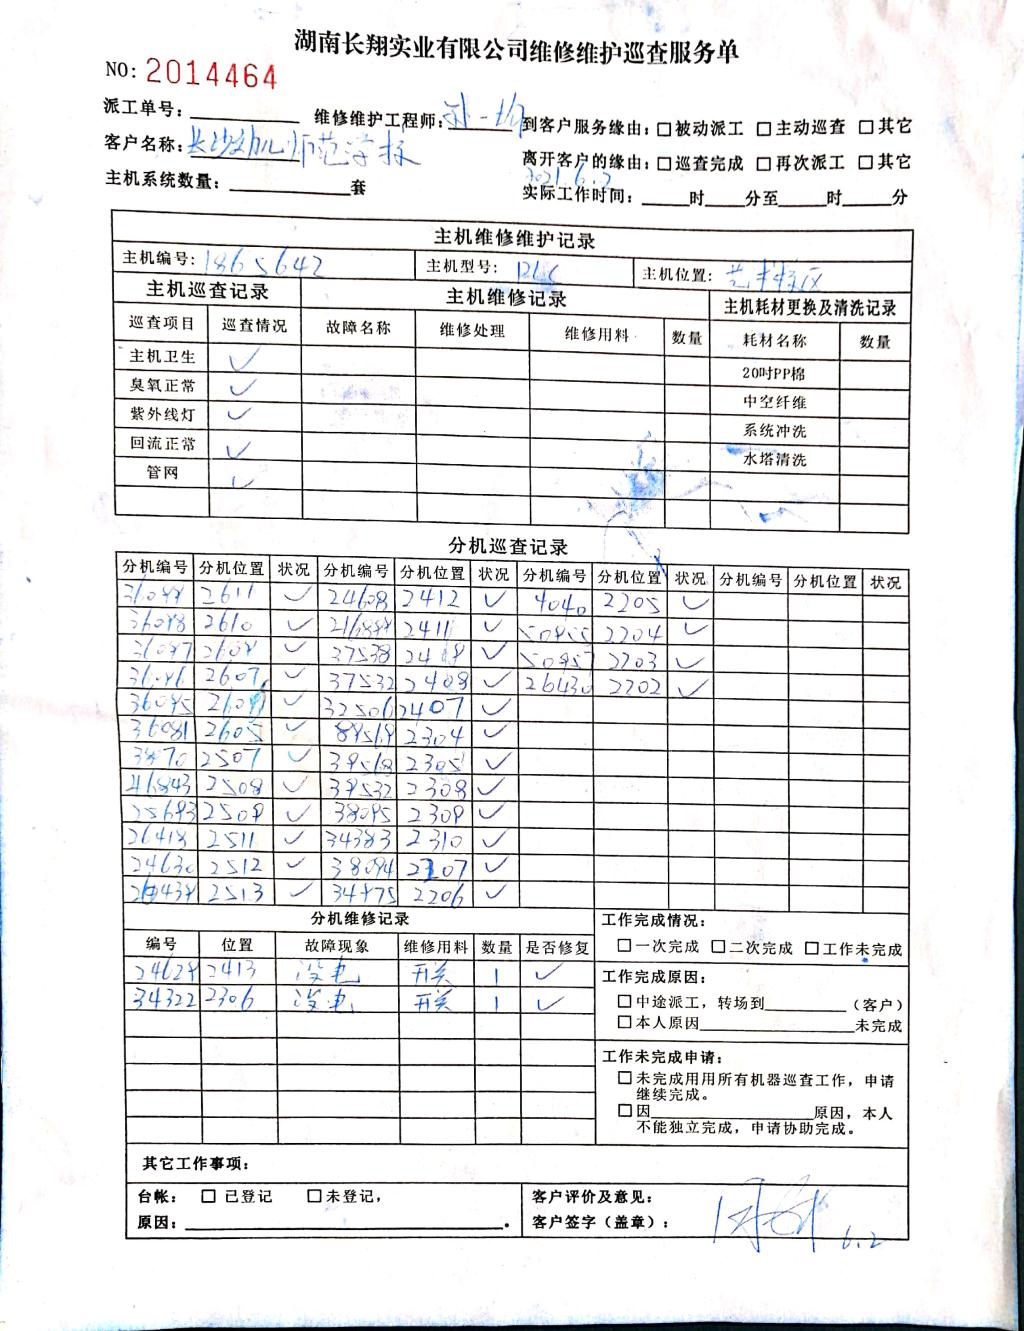 湖南长翔实业有限公司维修维护巡查服务单
NO: 2014464
派工单号: 维修维护工程师: 到客户服务缘由: □被动派工 □主动巡查 □其它
客户名称: 长沙幼儿师范学校 离开客户的缘由: □巡查完成 □再次派工 □其它
2021.6.2
主机系统数量: 套 实际工作时间: 时 分至 时 分
主机维修维护记录
主机编号: 1865642 主机型号: 主机位置: 艺术校区
主机巡查记录 主机维修记录 主机耗材更换及清洗记录
巡查项目 巡查情况 故障名称 维修处理 维修用料 数量 耗材名称 数量
主机卫生 ✓ 20吋PP棉
臭氧正常 ✓ 中空纤维
紫外线灯 ✓ 系统冲洗
回流正常 ✓ 水塔清洗
管网 ✓
分机巡查记录
分机编号 分机位置 状况 分机编号 分机位置 状况 分机编号 分机位置 状况 分机编号 分机位置 状况
2611 ✓ 24608 2412 ✓ 4040 2205 ✓
2610 ✓ 2411 ✓ 2204 ✓
✓ 37538 ✓ 50957 2203 ✓
2607 ✓ 37532 2408 ✓ 26430 2202 ✓
36095 ✓ 32506 2407 ✓
36081 2605 ✓ 2304 ✓
2507 ✓ 39568 2305 ✓
2508 ✓ 39532 2308 ✓
25693 2509 ✓ 38095 2309 ✓
26418 2511 ✓ 34383 2310 ✓
24630 2512 ✓ 38094 2207 ✓
2513 ✓ 34475 2206 ✓
分机维修记录 工作完成情况:
□一次完成 □二次完成 □工作未完成
编号 位置 故障现象 维修用料 数量 是否修复
24629 2413 没电 开关 1 ✓
34322 2306 没电 开关 1 ✓
工作完成原因:
□中途派工,转场到 (客户)
□本人原因 未完成
工作未完成申请:
□未完成用用所有机器巡查工作,申请
继续完成。
□因 原因,本人
不能独立完成,申请协助完成。
其它工作事项:
台帐: □ 已登记 □未登记, 客户评价及意见:
原因: 。 客户签字(盖章): 6.2